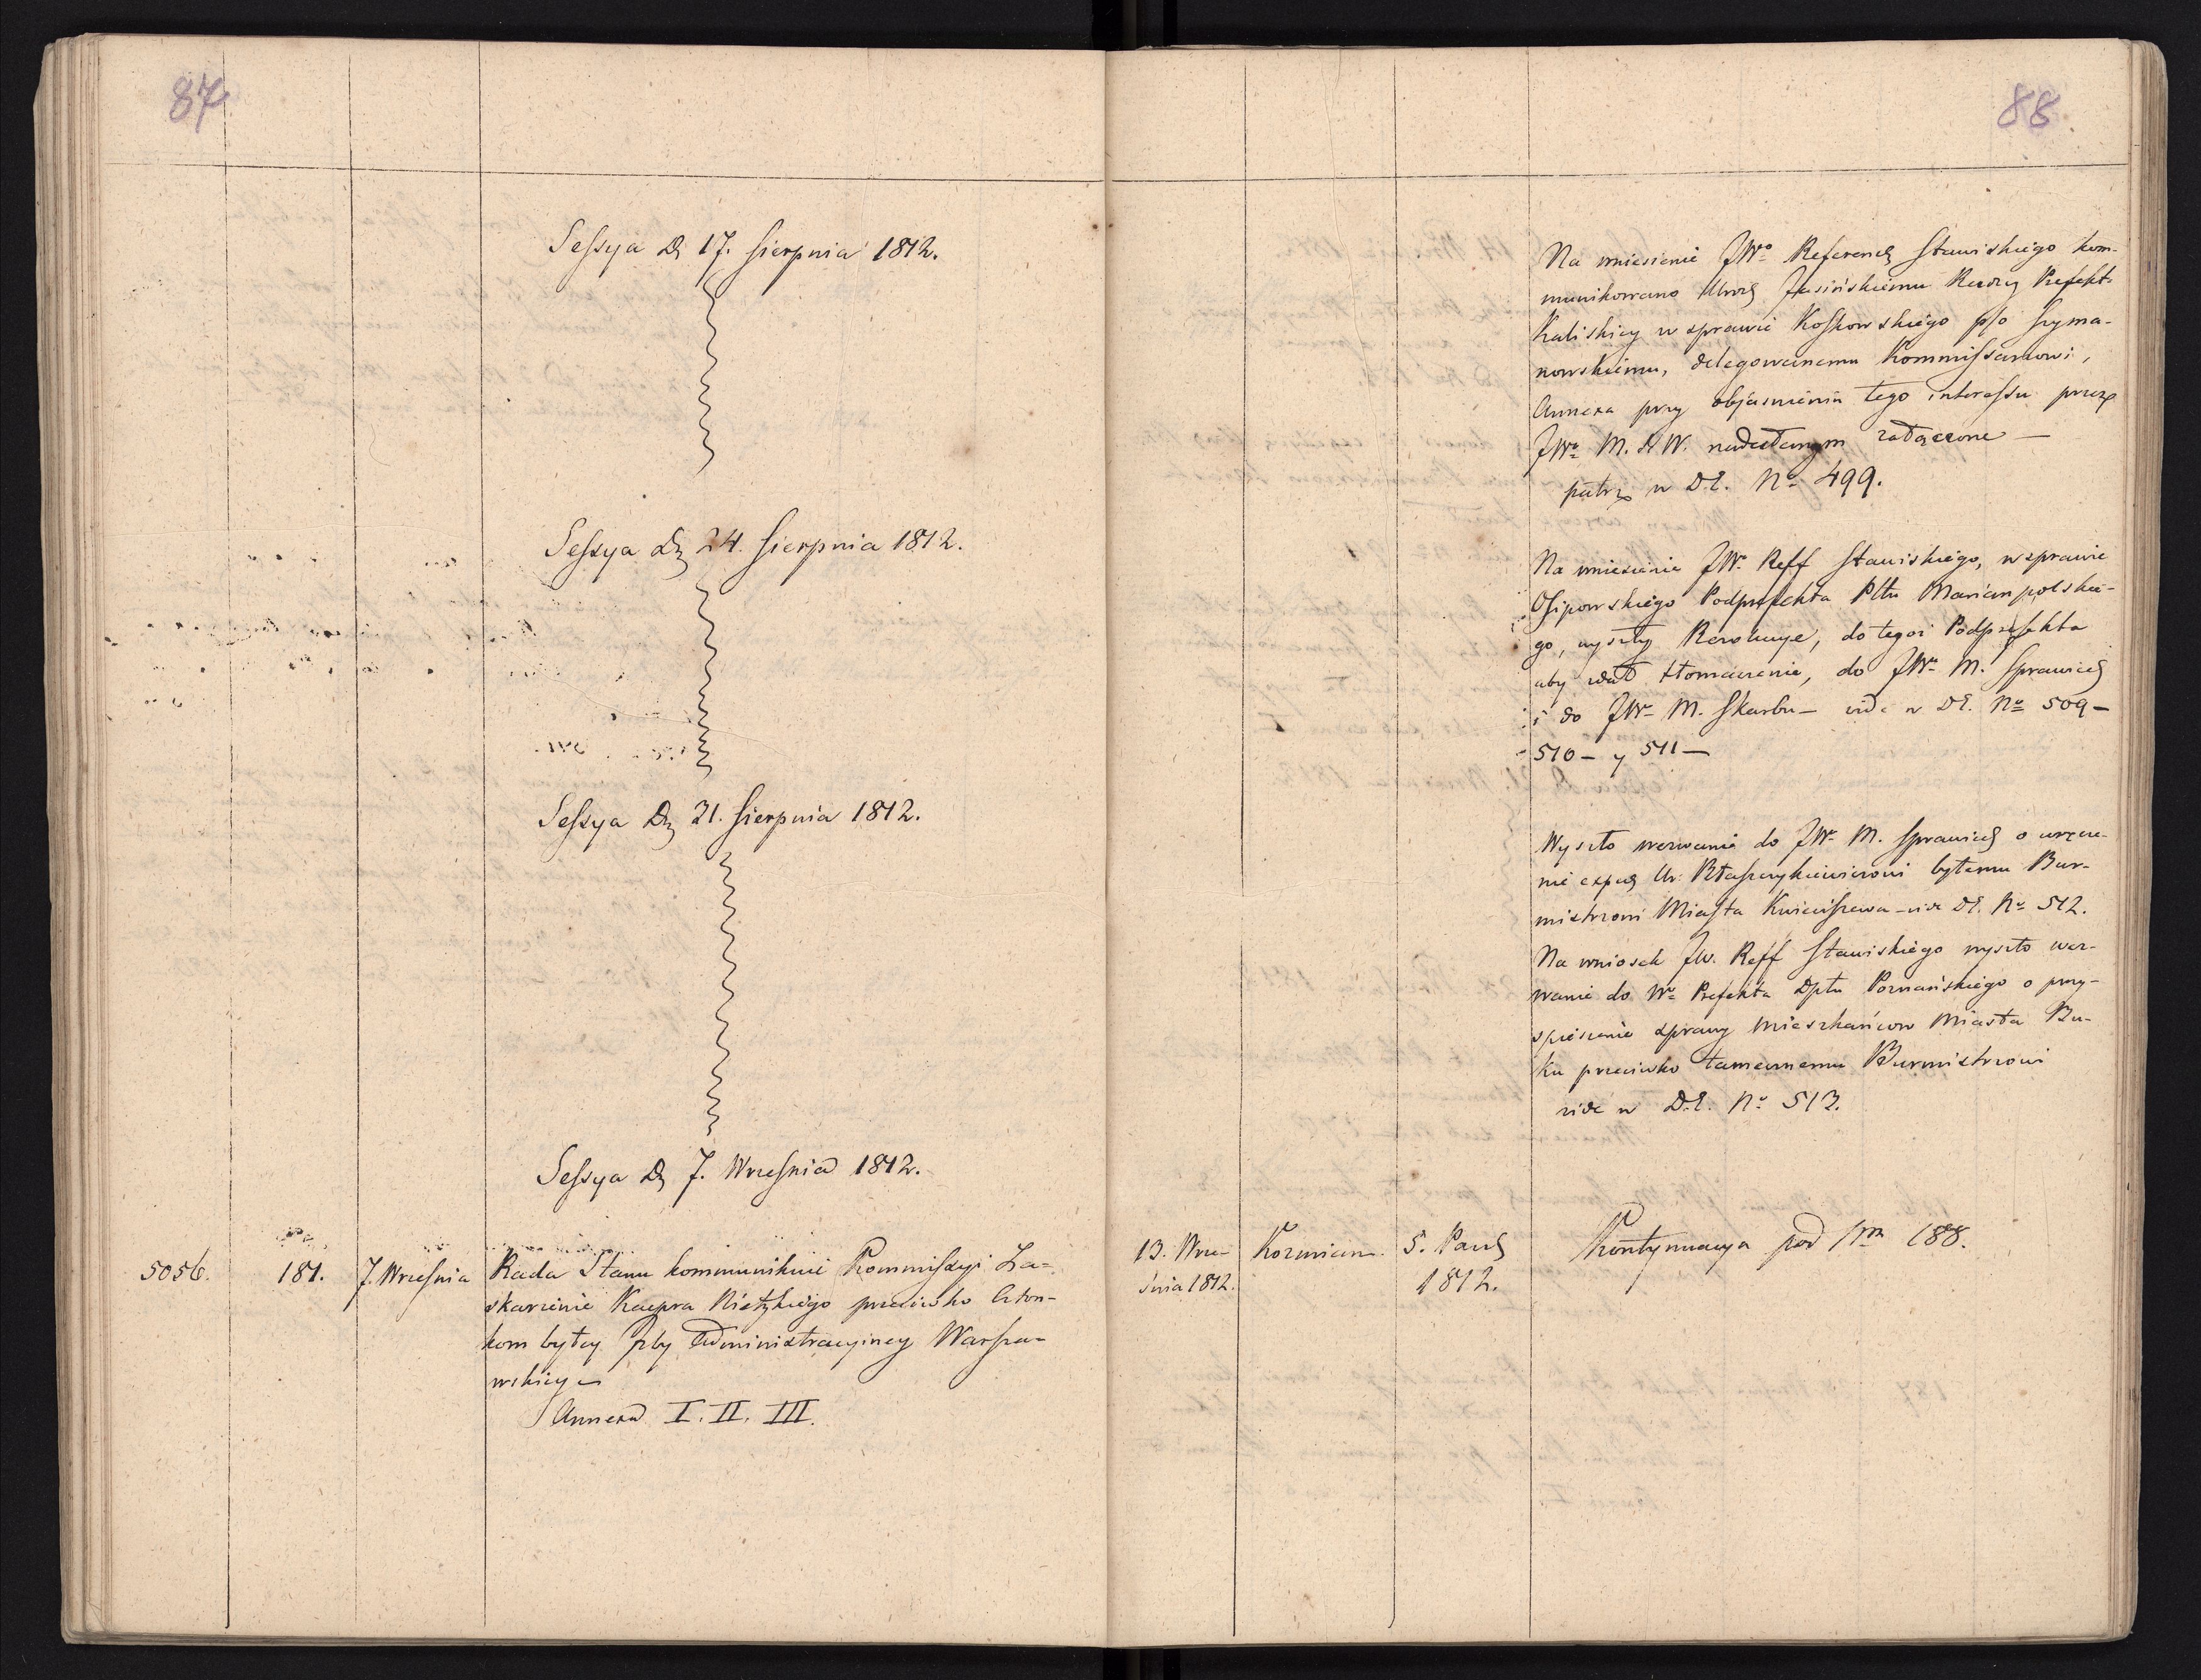 87
Sessya D. 17. Sierpnia 1812.
Sessya D. 24. Sierpnia 1812.
Sessya D. 31. Sierpnia 1812.
Sessya D. 7. Wrzesnia 1812.
5056. 181. 7. Wrzesnia Rada Stanu kommunikuie Kommissyi Za-
skarzenie Kacpra Rietzkiego przeciwko Człon-
kom byłey Izby Administracyiney Warsza-
wskiey
Annexa I. II. III.
88.
Na wniesienie JWo Referend Stawiskiego kom-
munikowano Jasińskiemu Radzcy Prefekt.
Kaliskiey w sprawie Koszkowskiego p/o Szyma-
nowskiemu, delegowanemu Kommissarzowi,
Annexa przy objasnieniu tego interessu przez
JWo M. S. W. nadesłanym załączone —
patrz w D.E. No 499.
Na wniesienie JWo Reff Stawiskiego, w sprawie
Osipowskiego Podprefekta Pttu Maryampolskie-
go, wyszły Rezolucye, do tegoż Podprefekta
aby dał tłomaczenie, do JWo M. Sprawied
i do JWo M. Skarbu — vide w DE. No 509 —
510 — y 511 —
Wyszło wezwanie do JWo M. Sprawied o wręcze-
nie exped Ur. Błaszczykiewiczowi byłemu Bur-
mistrzowi Miasta Kwieciszewa — vide DE. No 512.
Na wniosek JW. Reff Stawiskiego wyszło wez-
wanie do Wo Prefekta Dptu Poznańskiego o przy-
spieszenie sprawy Mieszkańcow Miasta Bu-
ku przeciwko tamecznemu Burmistrzowi
vide w D.E. No 513.
13. Wrze- Kozmian. 5. Pazd Kontynuacya pod Nm 188.
śnia 1812. 1812.